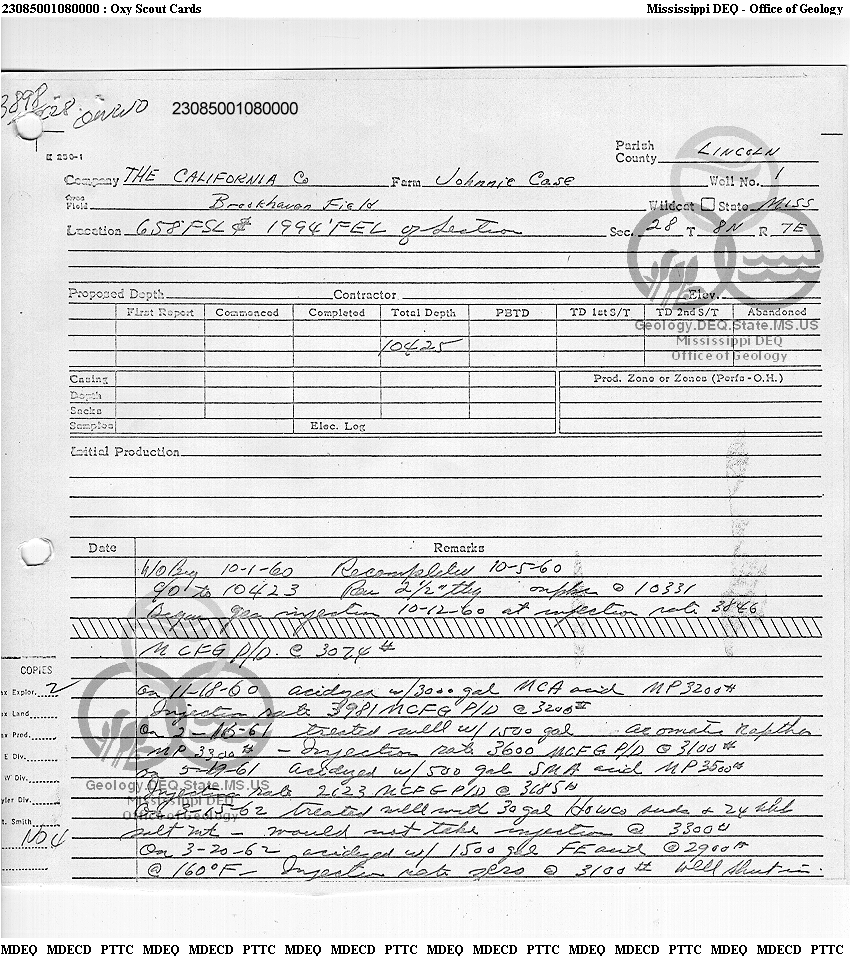 23085001080000 : Oxy Scout Cards Mississippi DEQ - Office of Geology
3898
OWWO 23085001080000
E 250-1
Parish County LINCOLN
Company THE CALIFORNIA Co Farm Johnnie Case Well No. 1
Area Field Brookhaven Field Wildcat State MISS
Location 658'FSL & 1994'FEL of Section Sec. 28 T 8N R 7E
Proposed Depth Contractor Elev.
First Report Commenced Completed Total Depth PBTD TD 1st S/T TD 2nd S/T Abandoned
Geology.DEQ.State.MS.US
10425 Mississippi DEQ
Office of Geology
Casing Prod. Zone or Zones (Perfs - O.H.)
Depth
Sacks
Samples Elec. Log
Initial Production
Date Remarks
W/O Beg 10-1-60 Recompleted 10-5-60
C/O to 10423 Ran 2 1/2" tbg @ 10331
Began gas injection 10-12-60 at injection rate 3846
MCFG P/D. @ 3074 #
COPIES
ax Explor. 2
ax Land
ax Prod.
E Div.
W Div.
yler Div.
t. Smith
104
On 11-18-60 acidized w/3000 gal MCA acid MP 3200#
Injection rate 3981 MCFG P/D @ 3200#
On 2-15-61 treated well w/1500 gal aromatic Naptha
MP 3300# - Injection rate 3600 MCFG P/D @ 3100#
On 5-19-61 acidized w/500 gals SMA acid MP 3500#
Geology.DEQ.State.MS.US
Injection rate 2623 MCFG P/D @ 3185#
Mississippi DEQ
Office of Geology
On 3-15-62 treated well with 30 gal Howco suds + 24 bbl
salt wt - would not take injection @ 3300#
On 3-20-62 acidized w/ 1500 gal FE acid @ 2900#
@ 160°F - Injection rate zero @ 3100 # Well Shut in.
MDEQ MDECD PTTC MDEQ MDECD PTTC MDEQ MDECD PTTC MDEQ MDECD PTTC MDEQ MDECD PTTC MDEQ MDECD PTTC